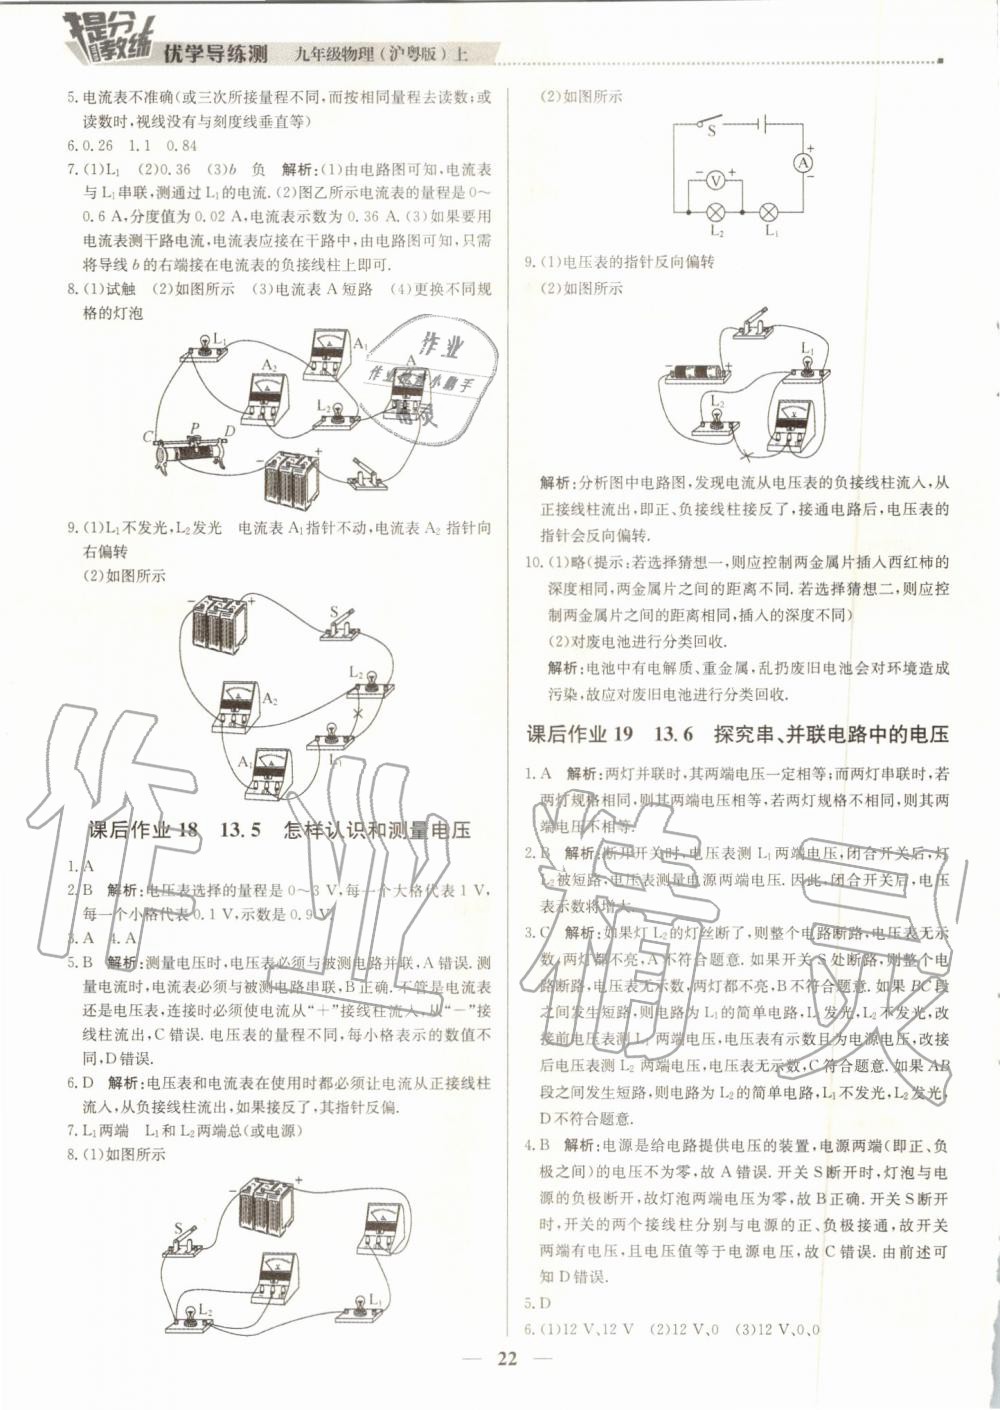 提分教练
优学导练测 九年级物理(沪粤版)上
5.电流表不准确(或三次所接量程不同,而按相同量程去读数;或
读数时,视线没有与刻度线垂直等)
6.0.26 1.1 0.84
7.(1)L₁ (2)0.36 (3)b 负 解析:(1)由电路图可知,电流表
与L₁串联,测通过L₁的电流.(2)图乙所示电流表的量程是0~
0.6 A,分度值为0.02 A,电流表示数为0.36 A.(3)如果要用
电流表测干路电流,电流表应接在干路中,由电路图可知,只需
将导线b的右端接在电流表的负接线柱上即可.
8.(1)试触 (2)如图所示 (3)电流表A短路 (4)更换不同规
格的灯泡
L₁
A₁
A₂
A
L₂
C P D
- +
9.(1)L₁不发光,L₂发光 电流表A₁指针不动,电流表A₂指针向
右偏转
(2)如图所示
- +
S
L₂
A₂
L₁
课后作业18 13.5 怎样认识和测量电压
1.A
2.B 解析:电压表选择的量程是0~3 V,每一个大格代表1 V,
每一个小格代表0.1 V,示数是0.9 V.
3.A 4.A
5.B 解析:测量电压时,电压表必须与被测电路并联,A错误.测
量电流时,电流表必须与被测电路串联,B正确.不管是电流表
还是电压表,连接时必须使电流从“+”接线柱流入,从“-”接
线柱流出,C错误.电压表的量程不同,每小格表示的数值不
同,D错误.
6.D 解析:电压表和电流表在使用时都必须让电流从正接线柱
流入,从负接线柱流出,如果接反了,其指针反偏.
7.L₁两端 L₁和L₂两端总(或电源)
8.(1)如图所示
- +
S
L₂
L₁
(2)如图所示
S
- +
+
A
-
- V +
L₂ L₁
9.(1)电压表的指针反向偏转
(2)如图所示
- +
L₁
L₂
解析:分析图中电路图,发现电流从电压表的负接线柱流入,从
正接线柱流出,即正、负接线柱接反了,接通电路后,电压表的
指针会反向偏转.
10.(1)略(提示:若选择猜想一,则应控制两金属片插入西红柿的
深度相同,两金属片之间的距离不同.若选择猜想二,则应控
制两金属片之间的距离相同,插入的深度不同)
(2)对废电池进行分类回收.
解析:电池中有电解质、重金属,乱扔废旧电池会对环境造成
污染,故应对废旧电池进行分类回收.
课后作业19 13.6 探究串、并联电路中的电压
1.A 解析:两灯并联时,其两端电压一定相等;而两灯串联时,若
两灯规格相同,则其两端电压相等,若两灯规格不相同,则其两
端电压不相等.
2.B 解析:断开开关时,电压表测L₁两端电压,闭合开关后,灯
L₂被短路,电压表测量电源两端电压.因此,闭合开关后,电压
表示数将增大.
3.C 解析:如果灯L₂的灯丝断了,则整个电路断路,电压表无示
数,两灯都不亮,A不符合题意.如果开关S处断路,则整个电
路断路,电压表无示数,两灯都不亮,B不符合题意.如果BC段
之间发生短路,则电路为L₁的简单电路,L₁发光,L₂不发光,改
接前电压表测L₁两端电压,电压表有示数且为电源电压,改接
后电压表测L₂两端电压,电压表无示数,C符合题意.如果AB
段之间发生短路,则电路为L₂的简单电路,L₁不发光,L₂发光,
D不符合题意.
4.B 解析:电源是给电路提供电压的装置,电源两端(即正、负
极之间)的电压不为零,故A错误.开关S断开时,灯泡与电
源的负极断开,故灯泡两端电压为零,故B正确.开关S断开
时,开关的两个接线柱分别与电源的正、负极接通,故开关
两端有电压,且电压值等于电源电压,故C错误.由前述可
知D错误.
5.D
6.(1)12 V、12 V (2)12 V、0 (3)12 V、0、0
22
作业精灵
作业
作业检查小帮手
精灵